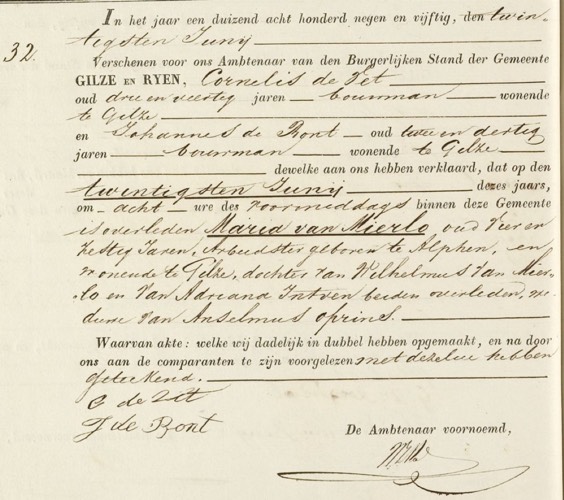 In het jaar een duizend acht honderd negen en vijftig, den twin-
tigsten Juny
32.
Verschenen voor ons Ambtenaar van den Burgerlijken Stand der Gemeente
GILZE EN RYEN, Cornelis de Zet
oud drie en veertig jaren bouwman wonende
te Gilze
en Johannes de Bont oud twee en dertig
jaren bouwman wonende te Gilze
dewelke aan ons hebben verklaard, dat op den
twintigsten Juny dezes jaars,
om acht ure des voormiddags binnen deze Gemeente
is overleden Maria van Mierlo, oud vier en
zestig Jaren, Arbeidster geboren te Alphen, en
wonende te Gilze, dochter van Wilhelmus Van Mier-
lo en Van Adriana Intven beiden overleden, we-
duwe Van Anselmus oprins.
Waarvan akte: welke wij dadelijk in dubbel hebben opgemaakt, en na door
ons aan de comparanten te zijn voorgelezen met dezelve hebben
geteekend.
C de Zet
J de Bont
De Ambtenaar voornoemd,